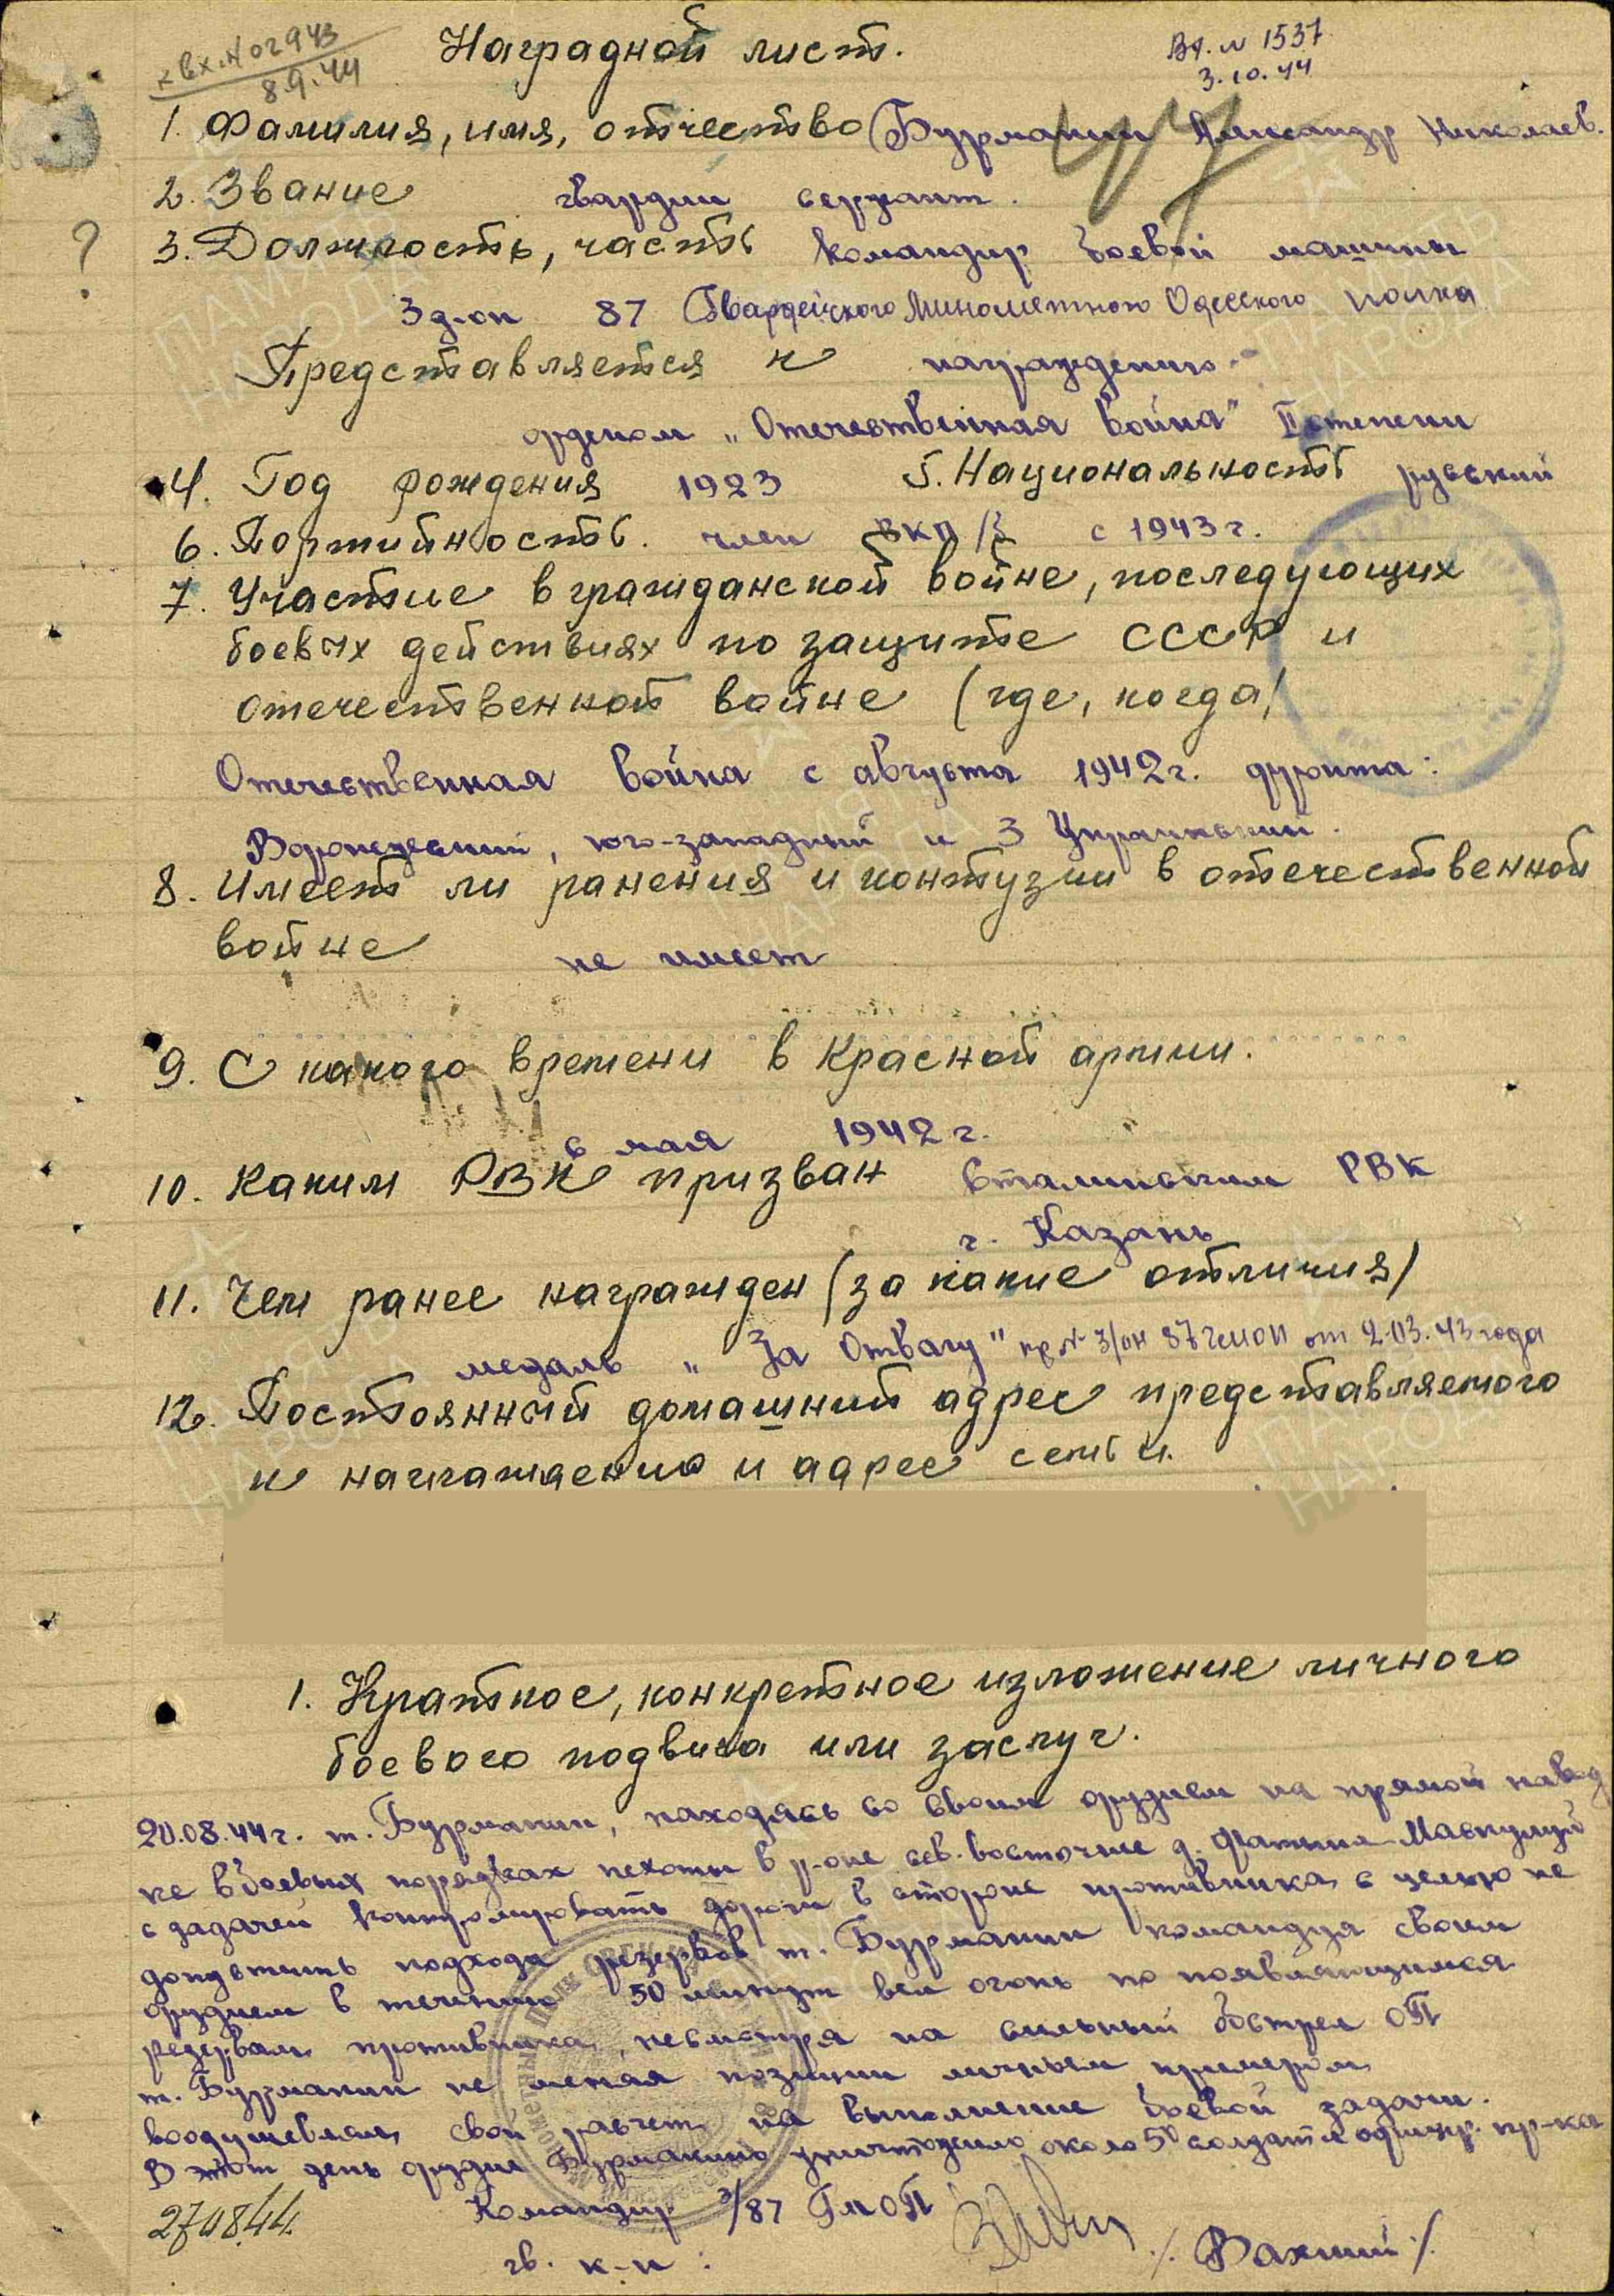 к вх. N 02943
8.9.44
Вх. N 1537
3.10.44
Наградной лист.
1. Фамилия, имя, отчество Бурмакин Александр Николаев.
2. Звание гвардии сержант.
3. Должность, часть командир боевой машины
3 д-он 87 Гвардейского Минометного Одесского полка
Представляется к награждению
орденом „Отечественная война" II степени
4. Год рождения 1923 5. Национальность русский
6. Партийность. член ВКП/б с 1943 г.
7. Участие в гражданской войне, последующих
боевых действиях по защите СССР и
отечественной войне (где, когда)
Отечественная война с августа 1942 г. фронта:
Воронежский, юго-западный и 3 Украинский.
8. Имеет ли ранения и контузии в отечественной
войне не имеет
9. С какого времени в Красной армии.
с мая 1942 г.
10. Каким РВК призван Сталинским РВК
г. Казань
11. Чем ранее награжден (за какие отличия)
медаль „За Отвагу" пр N 3/он 87 ГМОП от 2.03.43 года
12. Постоянный домашний адрес представляемого
к награждению и адрес семьи.
1. Краткое, конкретное изложение личного
боевого подвига или заслуг.
20.08.44 г. т. Бурмакин, находясь со своим орудием на прямой навод
ке в боевых порядках пехоты в р-оне сев. восточнее д.
с задачей контролировать дороги в стороне противника с целью не
допустить подхода резервов т. Бурмакин командуя своим
орудием в течении 50 минут вел огонь по появляющимся
резервам противника, несмотря на сильный обстрел ОП
т. Бурмакин не меняя позиции личным примером
воодушевлял свой расчет на выполнение боевой задачи.
В этот день орудие Бурмакина уничтожило около 50 солдат и офицер. пр-ка
27.08.44. Командир 3/87 ГМОП
гв. к-н: /Вахний/